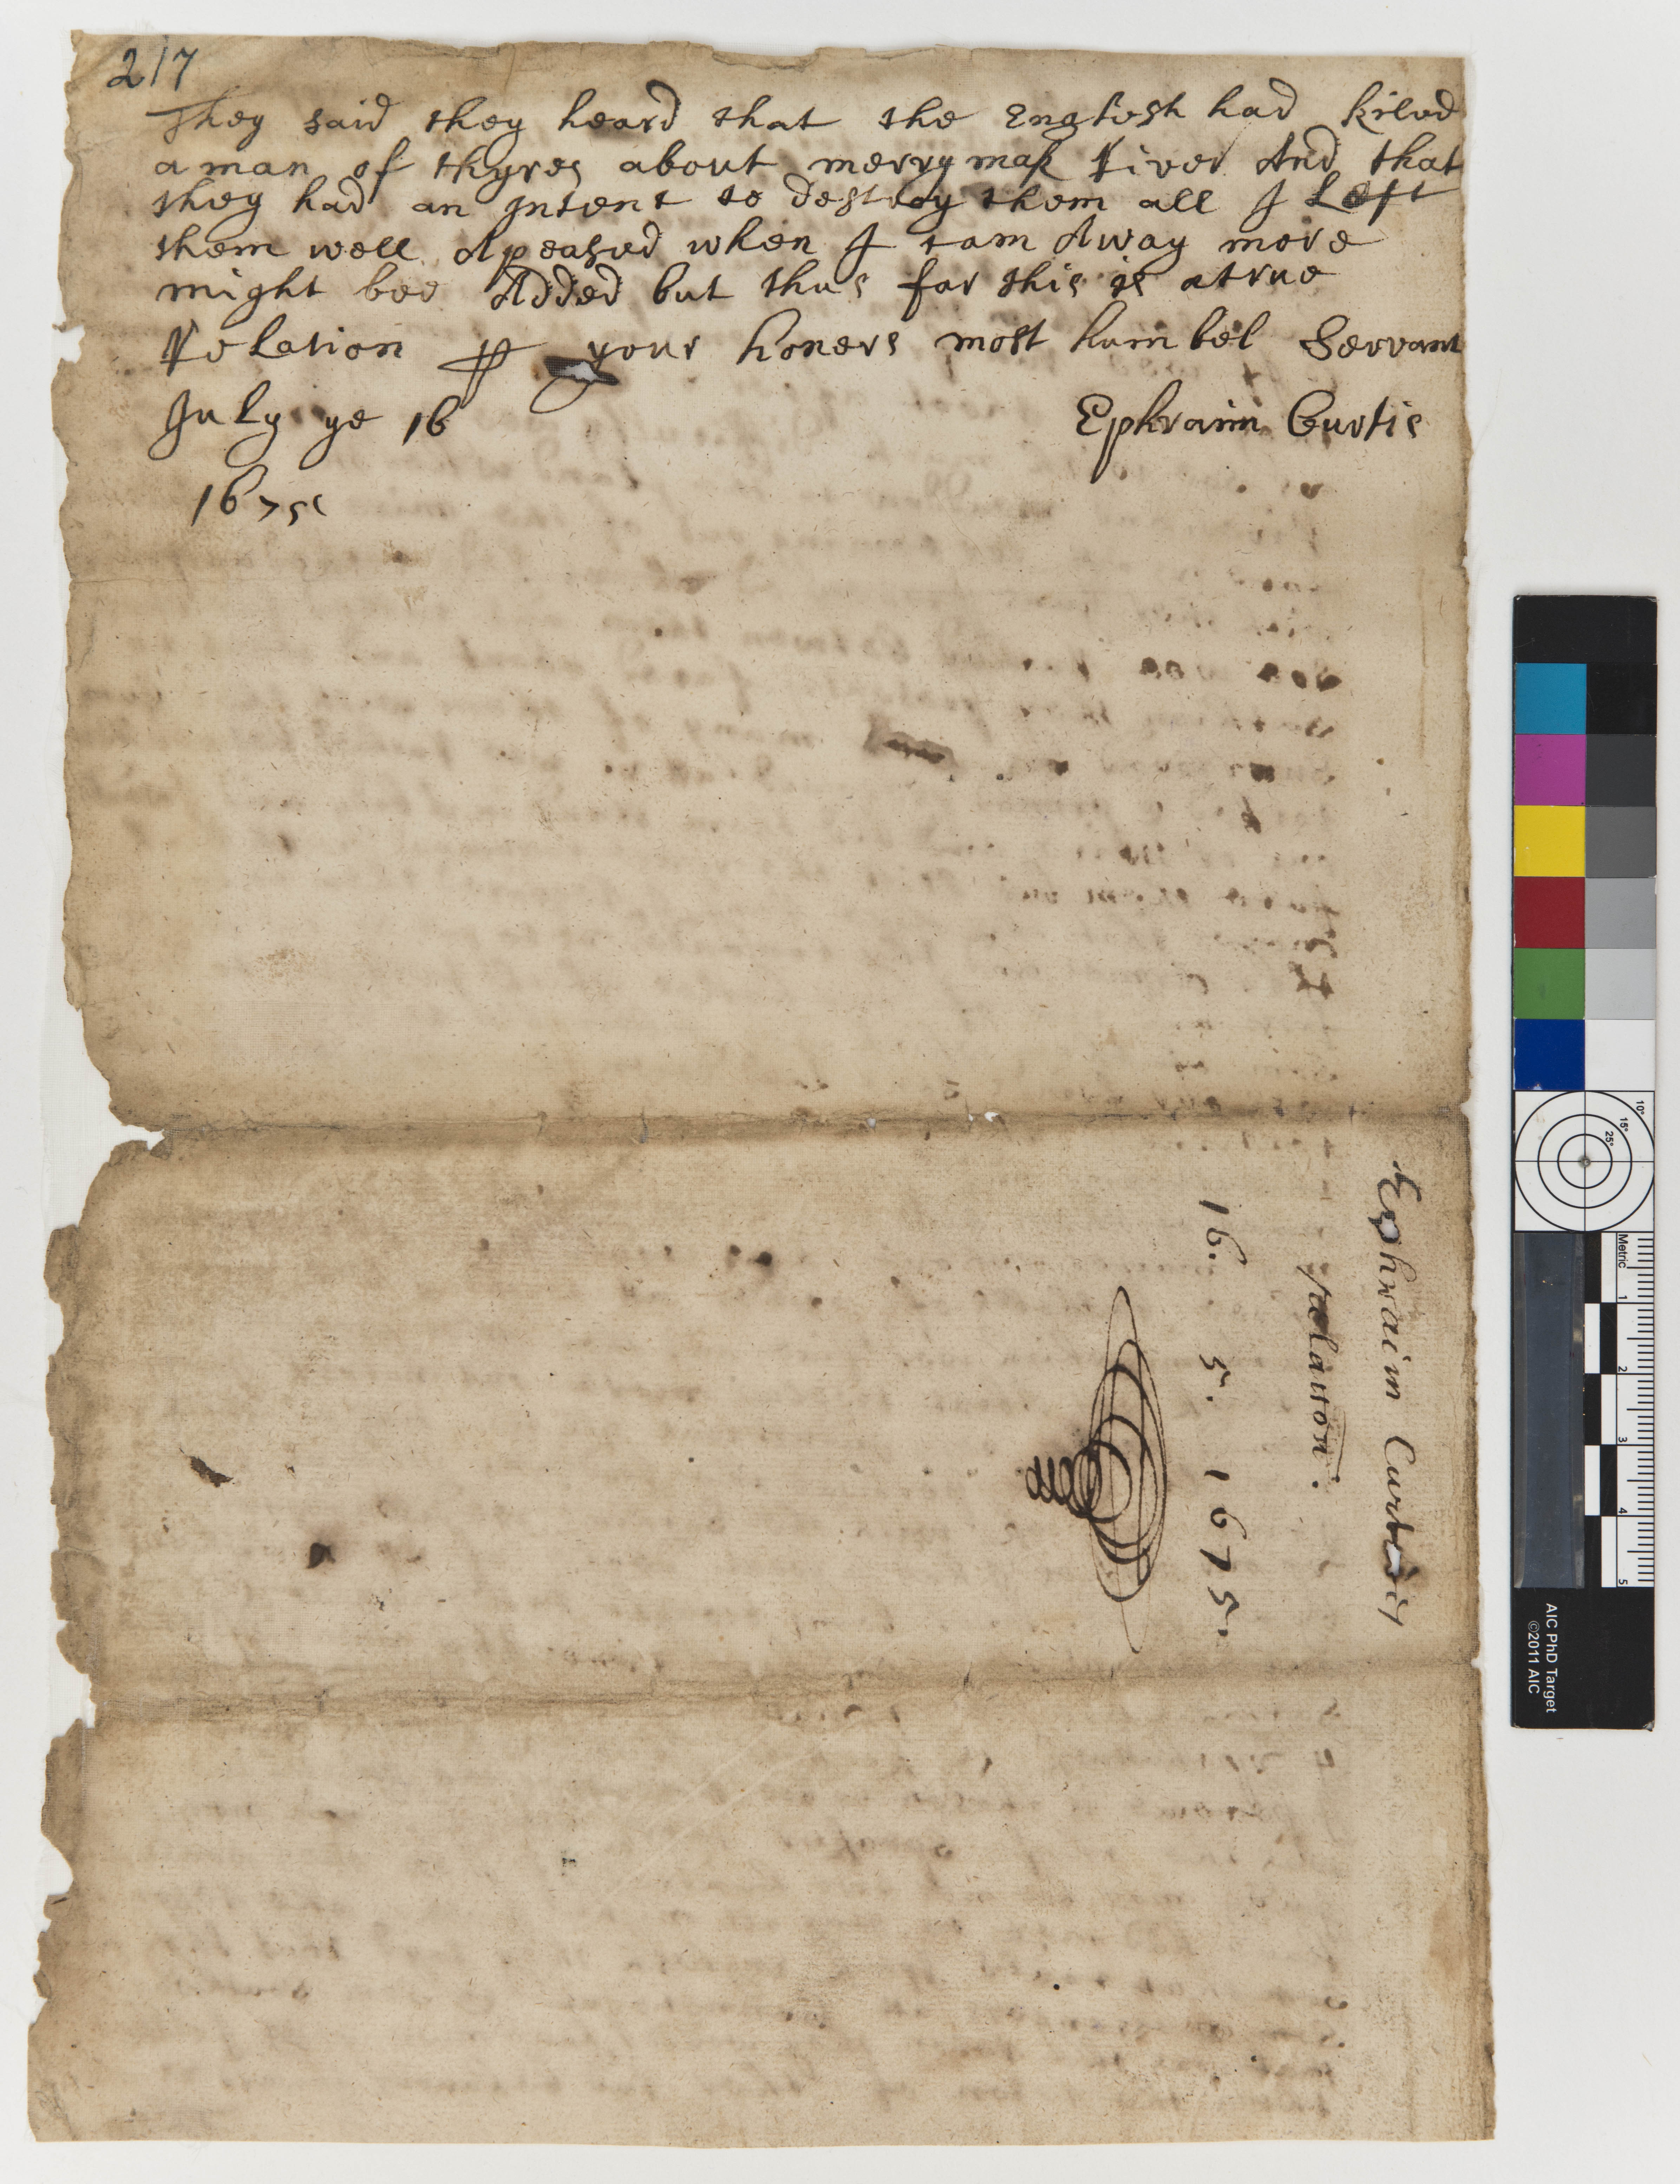 217
They said they heard that the English had kiled
a man of thyres about merrymak River And that
they had an Intent to destroy them all I Left
them well Apeased when I cam Away more
might bee Added but thus far this is a true
Relation ꝑ your honers most humbel Servant
July ye 16 Ephraim Curtis
1675
Ephraim Curtis
relation.
16. 5. 1675.
10°
15°
25°
Metric
1
2
3
4
5
AIC PhD Target
©2011 AIC